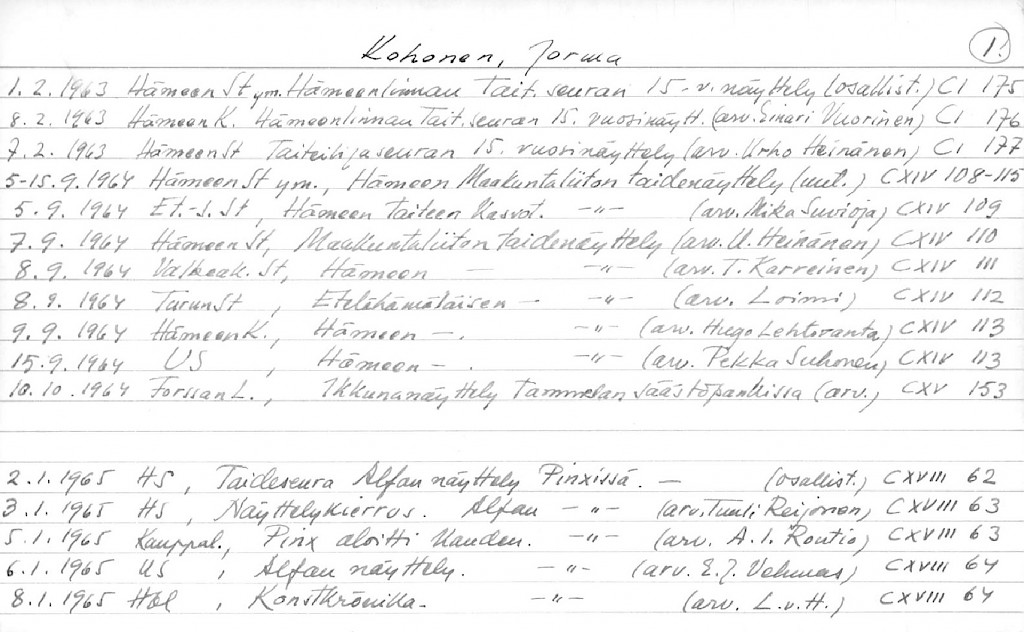 Kohonen, Jorma 1.
1.2.1963 Hämeen St ym. Hämeenlinnan Tait. seuran 15-v. näyttely (osallist.) CI 175
8.2.1963 Hämeen K. Hämeenlinnan Tait. seuran 15. vuosinäytt. (arv. Einari Vuorinen) CI 176
7.2.1963 Hämeen St Taiteilijaseuran 15. vuosinäyttely (arv. Urho Heinänen) CI 177
5-15.9.1964 Hämeen St ym., Hämeen Maakuntaliiton taidenäyttely (uut.) CXIV 108-115
5.9.1964 Et.-S. St, Hämeen Taiteen Kasvot. -"- (arv. Mika Suvioja) CXIV 109
7.9.1964 Hämeen St, Maakuntaliiton taidenäyttely (arv. U. Heinänen) CXIV 110
8.9.1964 Valkeak. St, Hämeen - -"- (arv. T. Karreinen) CXIV 111
8.9.1964 Turun St, Etelähämäläisen - -"- (arv. Loimi) CXIV 112
9.9.1964 Hämeen K., Hämeen -. -"- (arv. Hugo Lehtoranta) CXIV 113
15.9.1964 US, Hämeen -. -"- (arv. Pekka Suhonen) CXIV 113
10.10.1964 Forssan L., Ikkunanäyttely Tammelan säästöpankissa (arv.) CXV 153
2.1.1965 HS, Taideseura Alfan näyttely Pinxissä. - (osallist.) CXVIII 62
3.1.1965 HS, Näyttelykierros. Alfan - -"- (arv. Tuuli Reijonen) CXVIII 63
5.1.1965 Kauppal., Pinx aloitti kauden. -"- (arv. A.I. Routio) CXVIII 63
6.1.1965 US, Alfan näyttely. -"- (arv. E.J. Vehmas) CXVIII 64
8.1.1965 Hbl, Konstkrönika. -"- (arv. L.v.H.) CXVIII 64